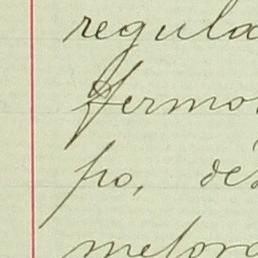 regula
fermo
po, des
mejora